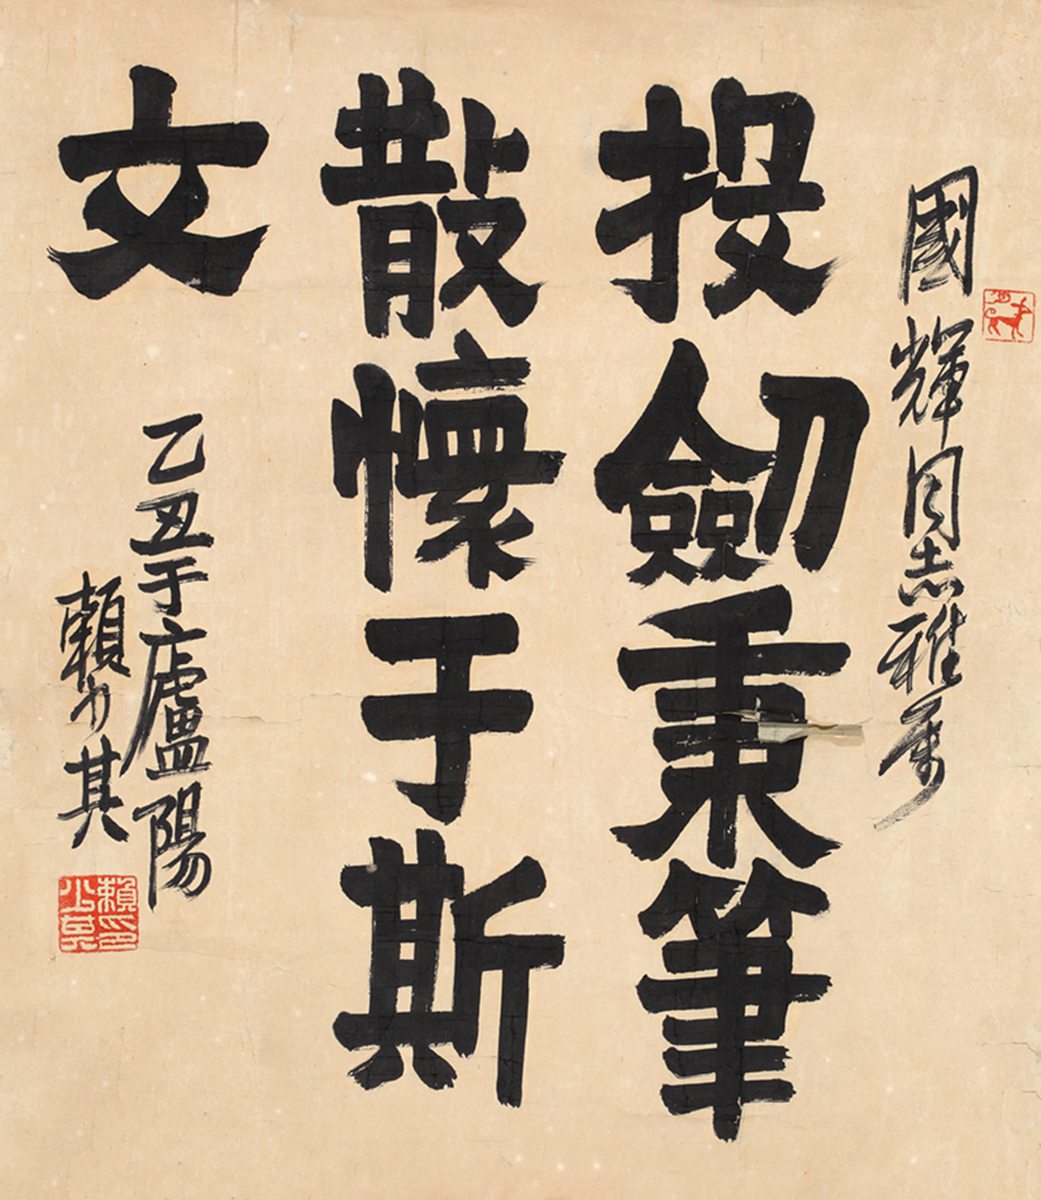 國輝同志雅属
投劒秉筆
散懷于斯
文
乙丑于廬陽
賴少其
賴印少其